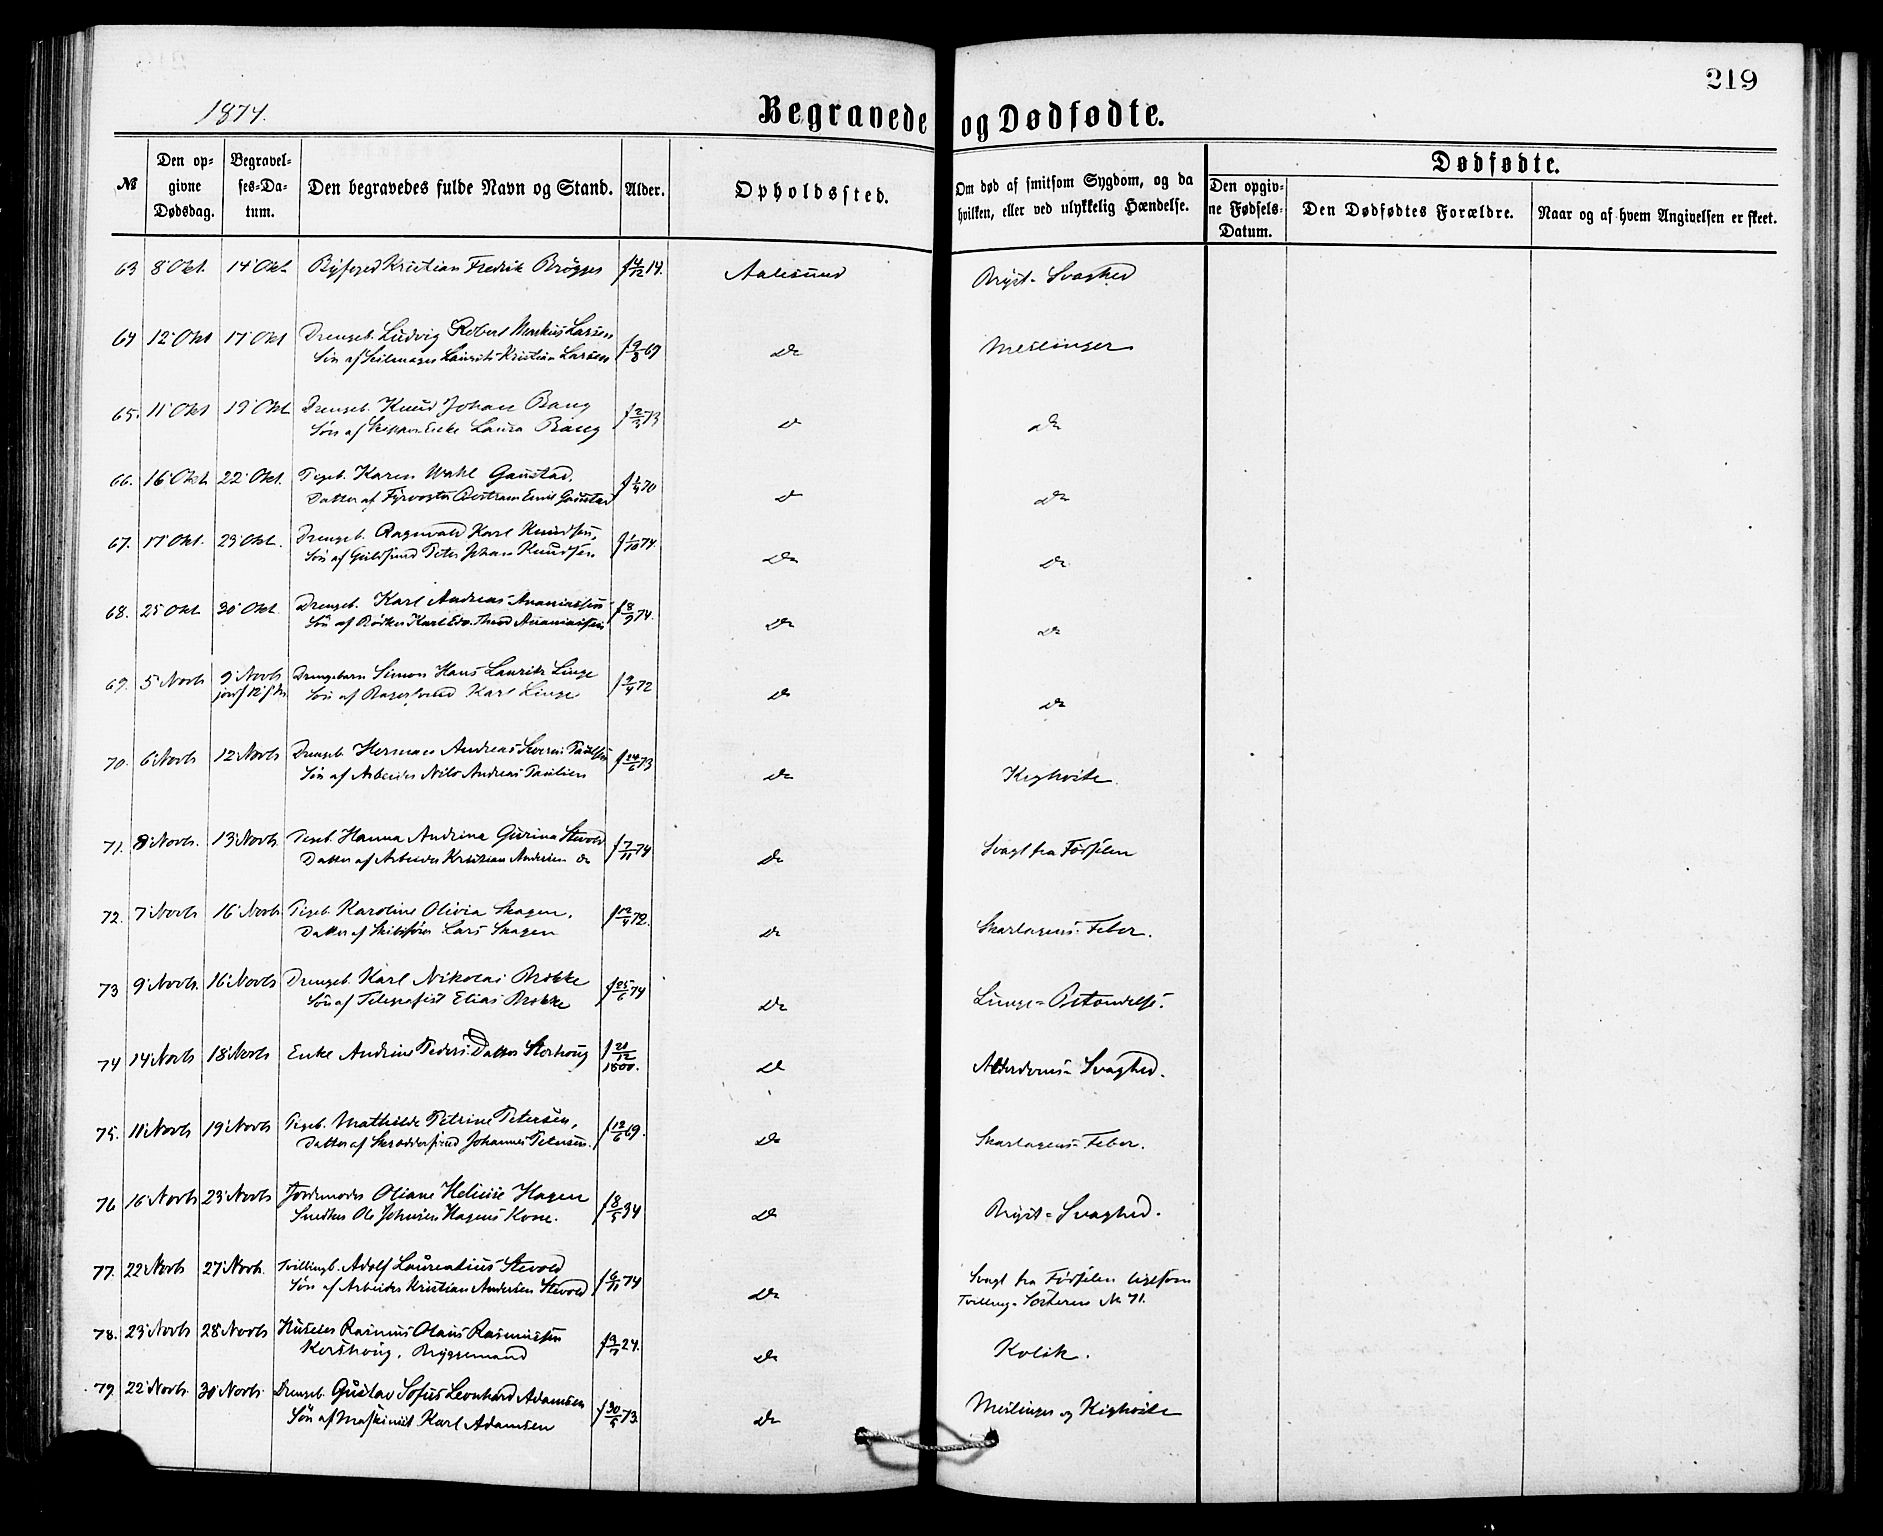 219
1874.
Begravede og Dødfødte.
№
Den opgivne Dødsdag.
Begravelses-Datum.
Den begravedes fulde Navn og Stand.
Alder.
Opholdssted.
Om død af smitsom Sygdom, og da hvilken, eller ved ulykkelig Hændelse.
Dødfødte.
Den opgivne Fødsels-Datum.
Den Dødfødtes Forældre.
Naar og af hvem Angivelsen er skeet.
63 8 Okt. 14 Okt. Byfoged Kristian Fredrik Brøgger f 4/12 14. Aalesund Bryst-Svaghed
64 12 Okt 17 Okt Drengeb. Ludvig Robert Markus Larsen f 9/8 67 Do Meslinger
Søn af Seilmager Laurits Kristian Larsen
65. 11 Okt 19 Okt Drengeb. Knud Johan Bang f 2/3 73 Do Do
Søn af Skipper Enke Laura Bang
66. 16 Okt. 22 Okt. Pigeb. Karen Wahl Gaustad, f 1/4 70 Do Do
Datter af Fyrvogter Bertram Emil Gaustad
67. 17 Okt. 23 Okt. Drengeb. Ragnvald Karl Knudsen, f 1/10 74. Do Do
Søn af Guldsmed Peter Johan Knudsen
68. 25 Okt 30 Okt. Drengeb. Karl Andreas Ananiassen f 8/9 74. Do Do
Søn af Bødker Karl Edv. Theod Ananiassen
69. 5 Novb 9 Novb Drengebarn Simon Hans Lauritz Linge f 9/4 72 Do Do
Søn af Bagersvend Karl Linge
70. 6 Novb 12 Novb Drengeb. Herman Andreas Severin Paulsen f 24/6 73 Do Kighoste.
Søn af Arbeider Nils Andreas Paulsen
71. 8 Novb. 13 Novb. Pigeb. Hanna Andrina Gurina Stevold f 7/11 74 Do Svagt fra Fødselen
Datter af Arbeider Kristian Andersen do
72. 7 Novb 16 Novb. Pigeb. Karoline Olivia Skagen, f 12/4 72. Do Skarlagens-Feber.
Datter af Skibsfører Lars Skagen
73 9 Novb. 16 Novb Drengeb. Karl Nikolai Brekke f 25/6 74 Do Lunge-Betændelse.
Søn af Telegrafist Elias Brekke
74 14 Novb 18 Novb Enke Andrine Peders Datter Storhoug f 21/12 1800. Do Alderdoms-Svaghed.
75. 11 Novb 19 Novb Pigeb. Mathilde Petrine Petersen, f 12/6 69. Do Skarlagens-Feber.
Datter af Skræddersvend Johannes Petersen.
76 16 Novb 23 Novb Jordemoder Oliane Heline Hagen f 8/5 34 Do Bryst-Svaghed.
Snedker Ole Johnsen Hagens Kone.
77. 22 Novb 27 Novb. Tvillingb. Adolf Laureatius Stevold f 6/11 74 Do Svagt fra Fødselen ligesom
Søn af Arbeider Kristian Andersen Stevold Tvilling-Søsteren № 71.
78. 23 Novb 28 Novb Huseier Rasmus Olaus Rasmussen f 9/1 24. Do Kolik.
Korshoug, Bryggemand
79. 22 Novb. 30 Novb. Drengeb. Gustav Sofus Leonhard Adamsen f 30/5 73. Do Meslinger og Kighoste
Søn af Maskinist Karl Adamsen